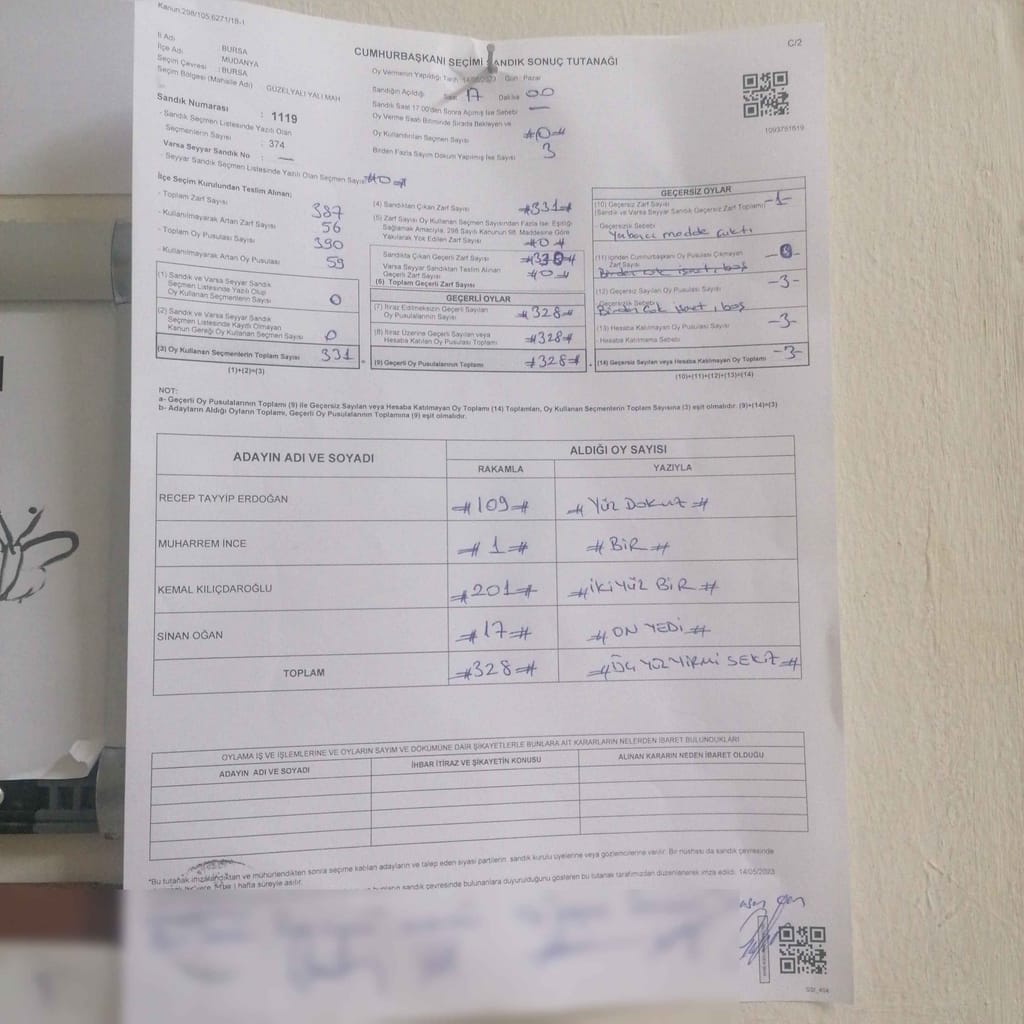 Kanun:298/105,6271/18-1
C/2
CUMHURBAŞKANI SEÇİMİ SANDIK SONUÇ TUTANAĞI
İl Adı : BURSA
İlçe Adı : MUDANYA
Seçim Çevresi : BURSA
Seçim Bölgesi (Mahalle Adı) GÜZELYALI YALI MAH
Sandık Numarası : 1119
- Sandık Seçmen Listesinde Yazılı Olan
Seçmenlerin Sayısı : 374
Varsa Seyyar Sandık No : —
- Seyyar Sandık Seçmen Listesinde Yazılı Olan Seçmen Sayısı #0#
Oy Vermenin Yapıldığı Tarih 14/05/2023 Gün : Pazar
Sandığın Açıldığı Saat 17 Dakika 00
Sandık Saat 17.00'den Sonra Açılmış İse Sebebi —
Oy Verme Saati Bitiminde Sırada Bekleyen ve
Oy Kullandırılan Seçmen Sayısı #0#
Birden Fazla Sayım Döküm Yapılmış İse Sayısı 3
1093751619
İlçe Seçim Kurulundan Teslim Alınan:
- Toplam Zarf Sayısı 387
- Kullanılmayarak Artan Zarf Sayısı 56
- Toplam Oy Pusulası Sayısı 390
- Kullanılmayarak Artan Oy Pusulası 59
(1) Sandık ve Varsa Seyyar Sandık
Seçmen Listesinde Yazılı Olup
Oy Kullanan Seçmenlerin Sayısı 0
(2) Sandık ve Varsa Seyyar Sandık
Seçmen Listesinde Kayıtlı Olmayan
Kanun Gereği Oy Kullanan Seçmen Sayısı 0
(3) Oy Kullanan Seçmenlerin Toplam Sayısı 331
(1)+(2)=(3)
(4) Sandıktan Çıkan Zarf Sayısı #331#
(5) Zarf Sayısı Oy Kullanan Seçmen Sayısından Fazla İse, Eşitliği
Sağlamak Amacıyla, 298 Sayılı Kanunun 98. Maddesine Göre
Yakılarak Yok Edilen Zarf Sayısı #0#
Sandıkta Çıkan Geçerli Zarf Sayısı
Varsa Seyyar Sandıktan Teslim Alınan
Geçerli Zarf Sayısı #0#
(6) Toplam Geçerli Zarf Sayısı
GEÇERLİ OYLAR
(7) İtiraz Edilmeksizin Geçerli Sayılan
Oy Pusulalarının Sayısı #328#
(8) İtiraz Üzerine Geçerli Sayılan veya
Hesaba Katılan Oy Pusulası Toplamı #328#
(9) Geçerli Oy Pusulalarının Toplamı #328#
GEÇERSİZ OYLAR
(10) Geçersiz Zarf Sayısı
(Sandık ve Varsa Seyyar Sandık Geçersiz Zarf Toplamı) -1-
- Geçersizlik Sebebi
Yabancı madde çıktı
(11) İçinden Cumhurbaşkanı Oy Pusulası Çıkmayan
Zarf Sayısı
(12) Geçersiz Sayılan Oy Pusulası Sayısı -3-
- Geçersizlik Sebebi
Birden çok işaret, boş
(13) Hesaba Katılmayan Oy Pusulası Sayısı -3-
- Hesaba Katılmama Sebebi
(14) Geçersiz Sayılan veya Hesaba Katılmayan Oy Toplamı -3-
(10)+(11)+(12)+(13)=(14)
NOT:
a- Geçerli Oy Pusulalarının Toplamı (9) ile Geçersiz Sayılan veya Hesaba Katılmayan Oy Toplamı (14) Toplamları, Oy Kullanan Seçmenlerin Toplam Sayısına (3) eşit olmalıdır. (9)+(14)=(3)
b- Adayların Aldığı Oyların Toplamı, Geçerli Oy Pusulalarının Toplamına (9) eşit olmalıdır.
ADAYIN ADI VE SOYADI ALDIĞI OY SAYISI
RAKAMLA YAZIYLA
RECEP TAYYİP ERDOĞAN #109# # Yüz Dokuz #
MUHARREM İNCE #1# # BİR #
KEMAL KILIÇDAROĞLU #201# # İKİ YÜZ BİR #
SİNAN OĞAN #17# # ON YEDİ #
TOPLAM #328# # ÜÇ YÜZ YİRMİ SEKİZ #
OYLAMA İŞ VE İŞLEMLERİNE VE OYLARIN SAYIM VE DÖKÜMÜNE DAİR ŞİKAYETLERLE BUNLARA AİT KARARLARIN NELERDEN İBARET BULUNDUKLARI
ADAYIN ADI VE SOYADI İHBAR İTİRAZ VE ŞİKAYETİN KONUSU ALINAN KARARIN NEDEN İBARET OLDUĞU
*Bu tutanak imzalandıktan ve mühürlendikten sonra seçime katılan adayların ve talep eden siyasi partilerin sandık kurulu üyelerine veya gözlemcilerine verilir. Bir nüshası da sandık çevresinde
1 hafta süreyle asılır.
sandık çevresinde bulunanlara duyurulduğunu gösteren bu tutanak tarafımızdan düzenlenerek imza edildi. 14/05/2023